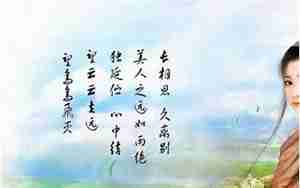 长相思 久离别
美人之远如雨绝
独延伫 心中结
望云云去远
望鸟鸟飞灭